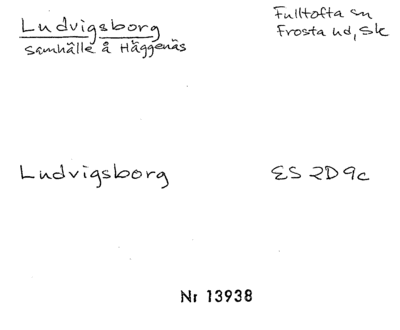 Ludvigsborg
samhälle å Häggenäs
Fulltofta sn
Frosta hd, Sk
Ludvigsborg
ES 2D9c
Nr 13938